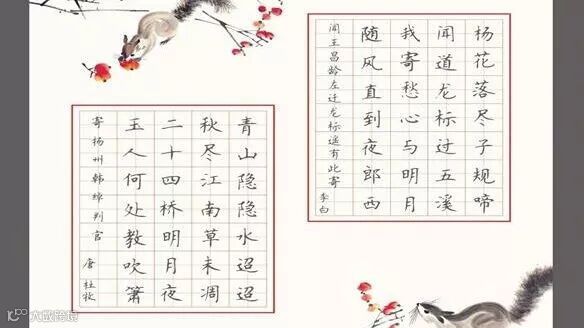 杨花落尽子规啼
闻道龙标过五溪
我寄愁心与明月
随风直到夜郎西
闻王昌龄左迁龙标遥有此寄 李白
青山隐隐水迢迢
秋尽江南草未凋
二十四桥明月夜
玉人何处教吹箫
寄扬州韩绰判官 唐 杜牧
大数跨境